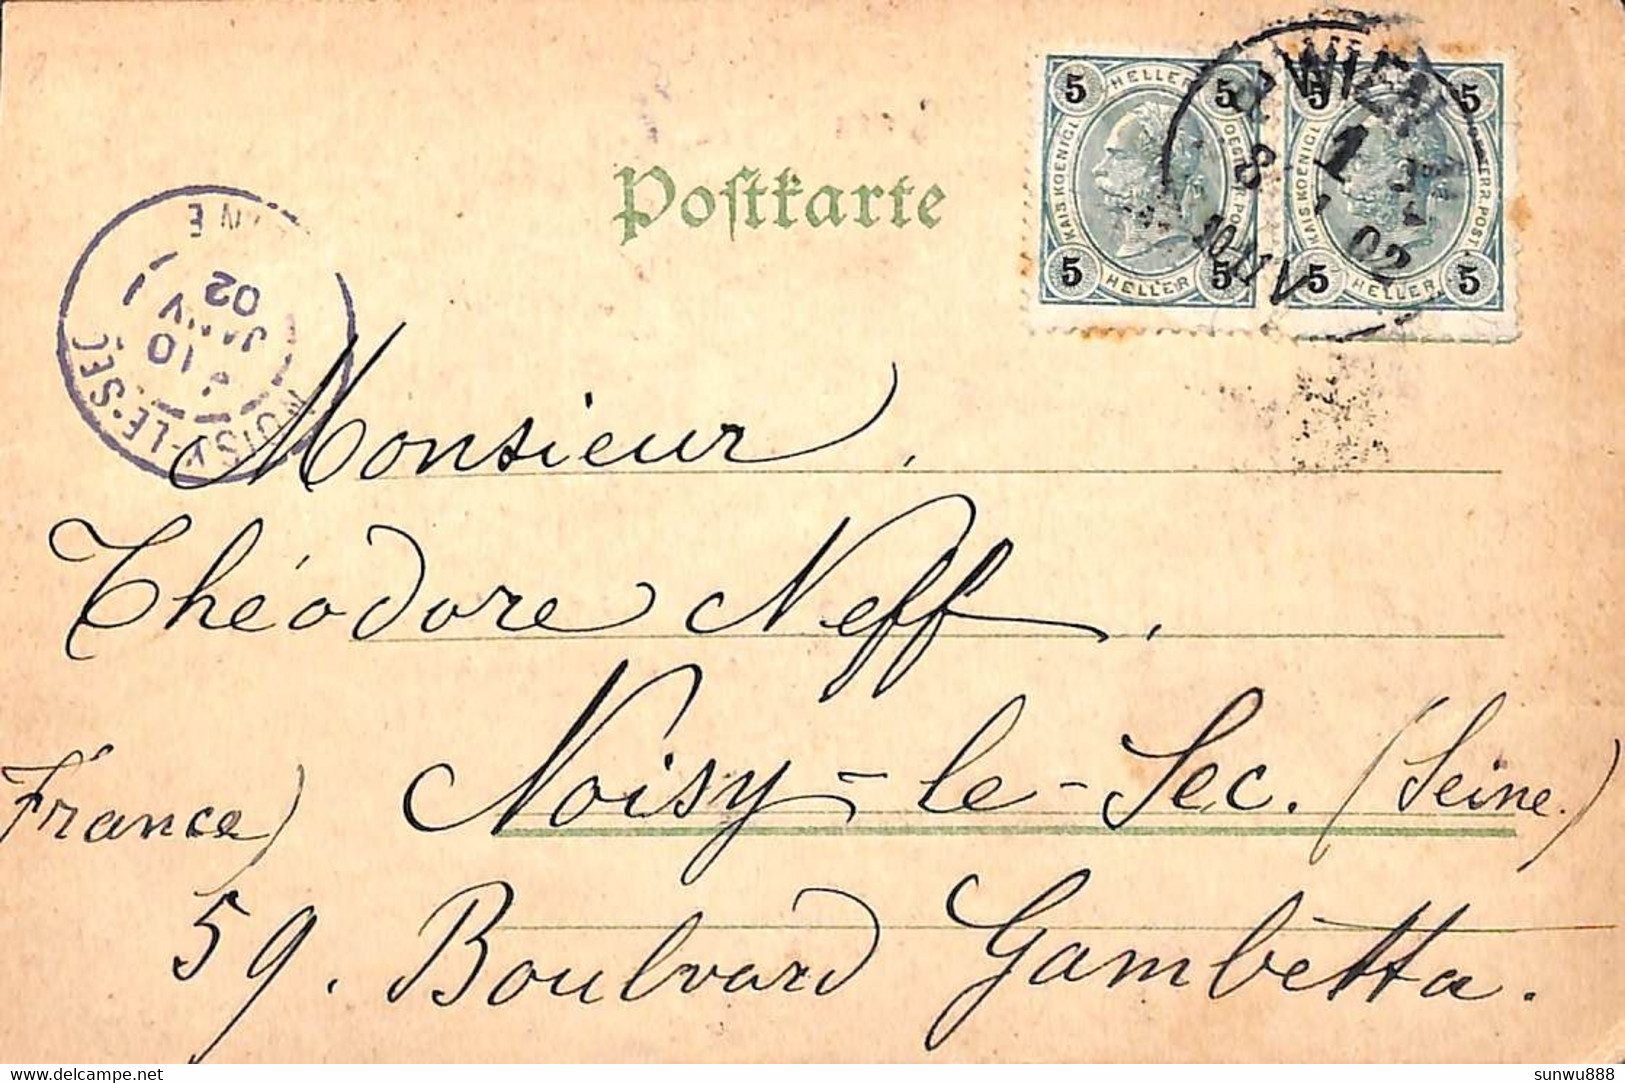 5 HELLER 5
5 HELLER 5
KAIS. KOENIGL.
KAIS. KOENIGL.
5 HELLER 5
5 HELLER 5
WIEN
1
8 1 02
Postkarte
NOISY-LE-SEC
10
JANV
02
Monsieur.
Théodore Neff.
Noisy-le-Sec. (Seine.)
France)
59. Boulvard Gambetta.
delcampe.net
sunwu888